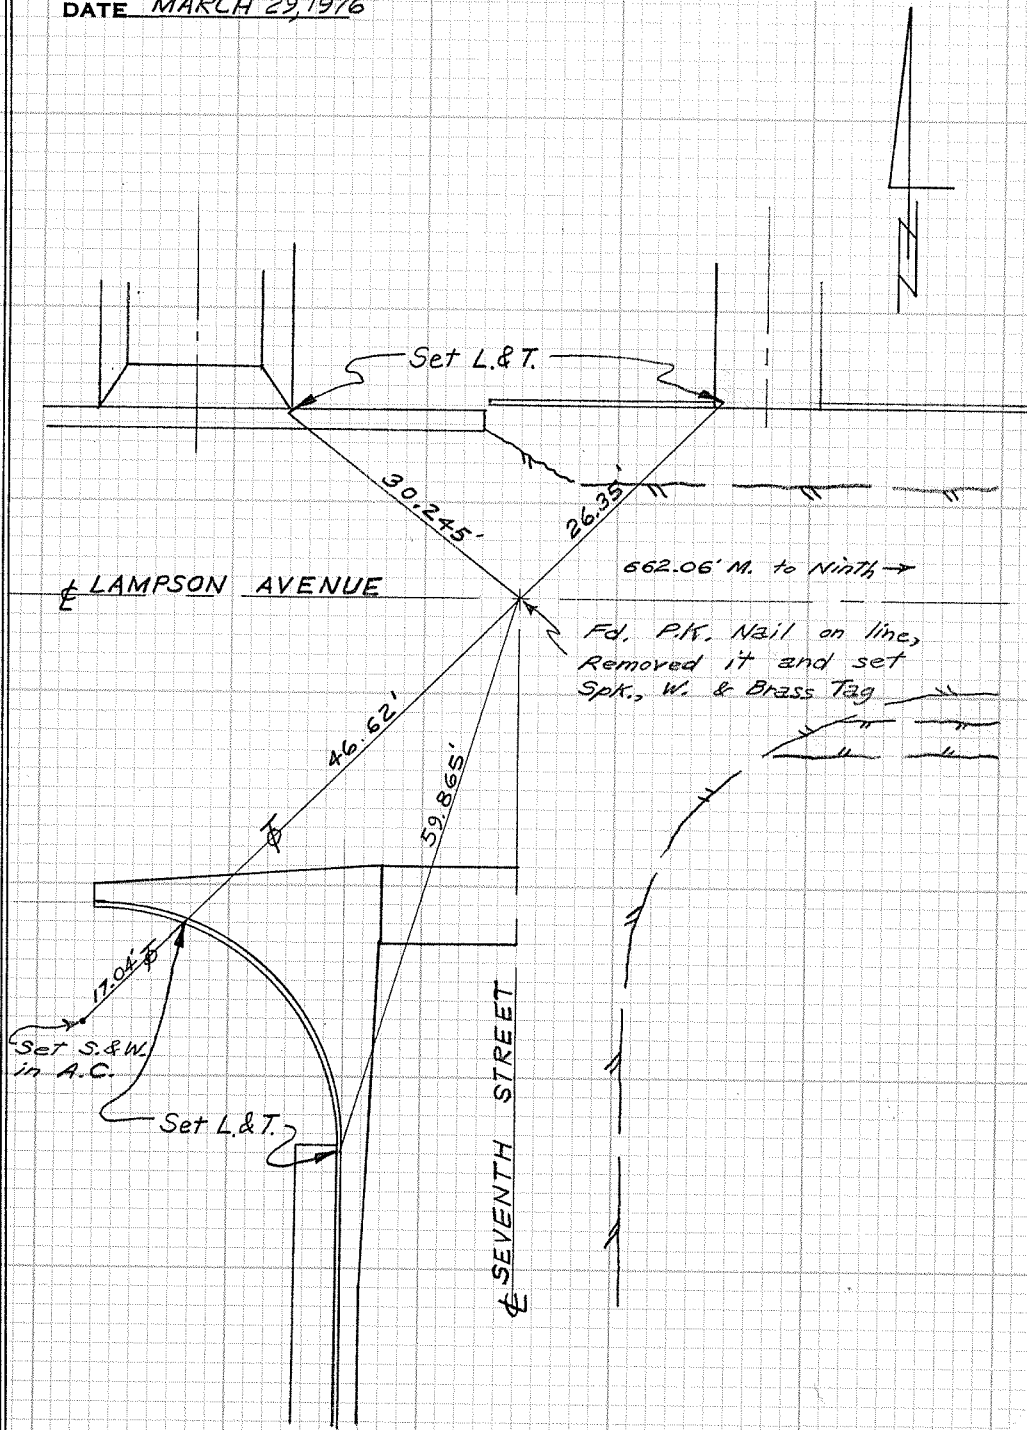 DATE MARCH 29, 1976
Set L.&T.
30.245'
26.35'
662.06' M. to Ninth →
℄ LAMPSON AVENUE
Fd. P.K. Nail on line,
Removed it and set
Spk., W. & Brass Tag
46.62'
59.865'
17.04'
Set S.&W.
in A.C.
Set L.&T.
℄ SEVENTH STREET
N